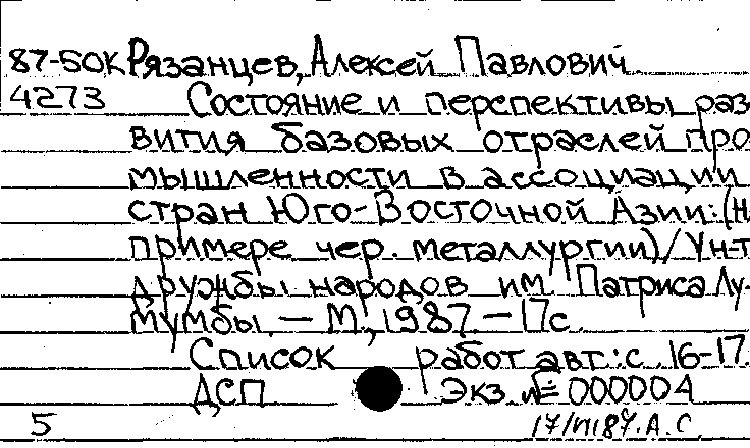 87-50К Рязанцев, Алексей Павлович
4273 Состояние и перспективы раз
вития базовых отраслей про
мышленности в ассоциации
стран Юго-Восточной Азии: (н
примере чер. металлургии)/Ун-т
дружбы народов им. Патриса Лу-
мумбы. — М., 1987. — 17с.
Список работ авт.: с. 16-17.
ДСП Экз. № 000004
5 А.С.